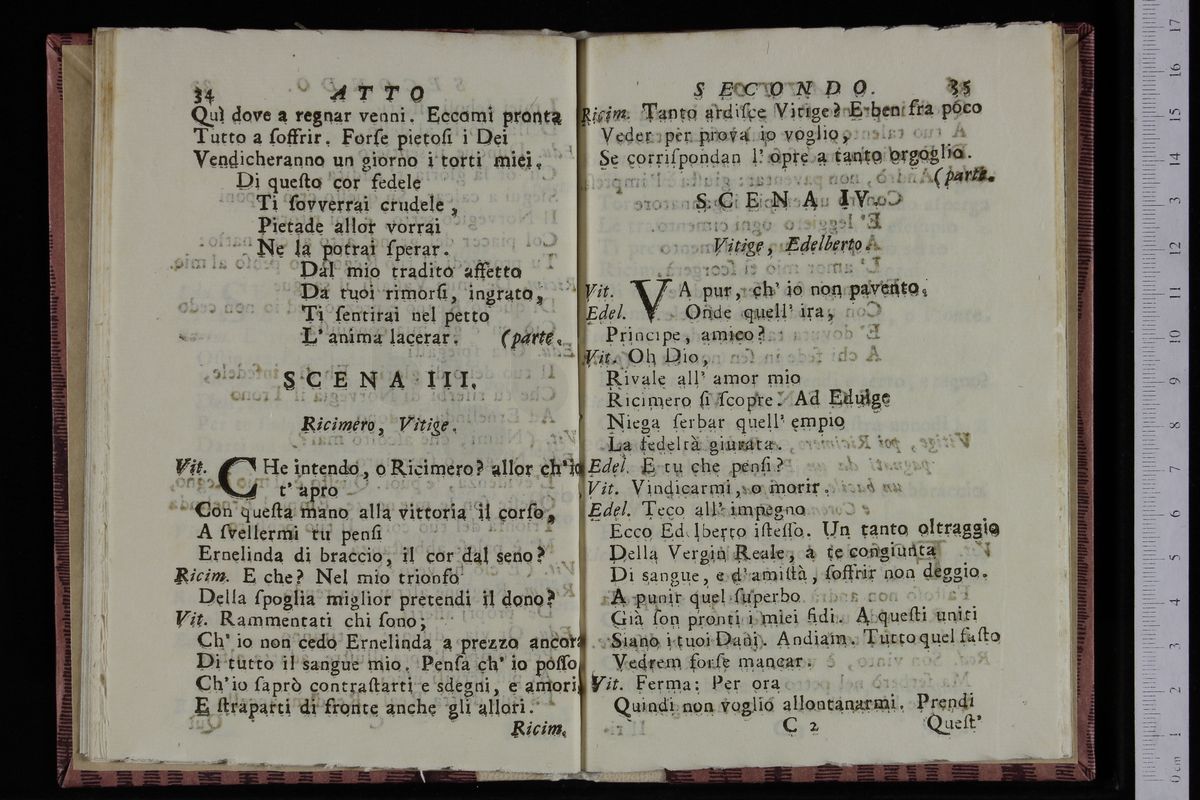 34 ATTO
Quì dove a regnar venni. Eccomi pronta
Tutto a ſoffrir. Forſe pietoſi i Dei
Vendicheranno un giorno i torti miei.
Di queſto cor fedele
Ti ſovverrai crudele,
Pietade allor vorrai
Ne la potrai ſperar.
Dal mio tradito affetto
Da tuoi rimorſi, ingrato,
Ti ſentirai nel petto
L' anima lacerar. (parte.
SCENA III.
Ricimero, Vitige.
Vit. CHe intendo, o Ricimero? allor ch'io
t' apro
Con queſta mano alla vittoria il corſo,
A ſvellermi tu penſi
Ernelinda di braccio, il cor dal seno?
Ricim. E che? Nel mio trionfo
Della ſpoglia miglior pretendi il dono?
Vit. Rammentati chi ſono;
Ch' io non cedo Ernelinda a prezzo ancora
Di tutto il sangue mio. Penſa ch' io poſſo
Ch'io ſaprò contraſtarti e sdegni, e amori,
E ſtraparti di fronte anche gli allori.
Ricim.
SECONDO. 35
Ricim. Tanto ardiſce Vitige? E ben fra poco
Veder per prova io voglio,
Se corriſpondan l' opre a tanto orgoglio.
(parte.
SCENA IV.
Vitige, Edelberto.
Vit. VA pur, ch' io non pavento.
Edel. Onde quell' ira,
Principe, amico?
Vit. Oh Dio,
Rivale all' amor mio
Ricimero ſi ſcopre. Ad Eduige
Niega ſerbar quell' empio
La fedeltà giurata.
Edel. E tu che penſi?
Vit. Vindicarmi, o morir.
Edel. Teco all' impegno
Ecco Edelberto iſteſſo. Un tanto oltraggio
Della Vergin Reale, a te congiunta
Di sangue, e d' amiſtà, ſoffrir non deggio.
A punir quel ſuperbo
Già ſon pronti i miei fidi. A queſti uniti
Siano i tuoi Dani. Andiam. Tutto quel faſto
Vedrem forſe mancar.
Vit. Ferma: Per ora
Quindi non voglio allontanarmi. Prendi
C 2 Queſt'